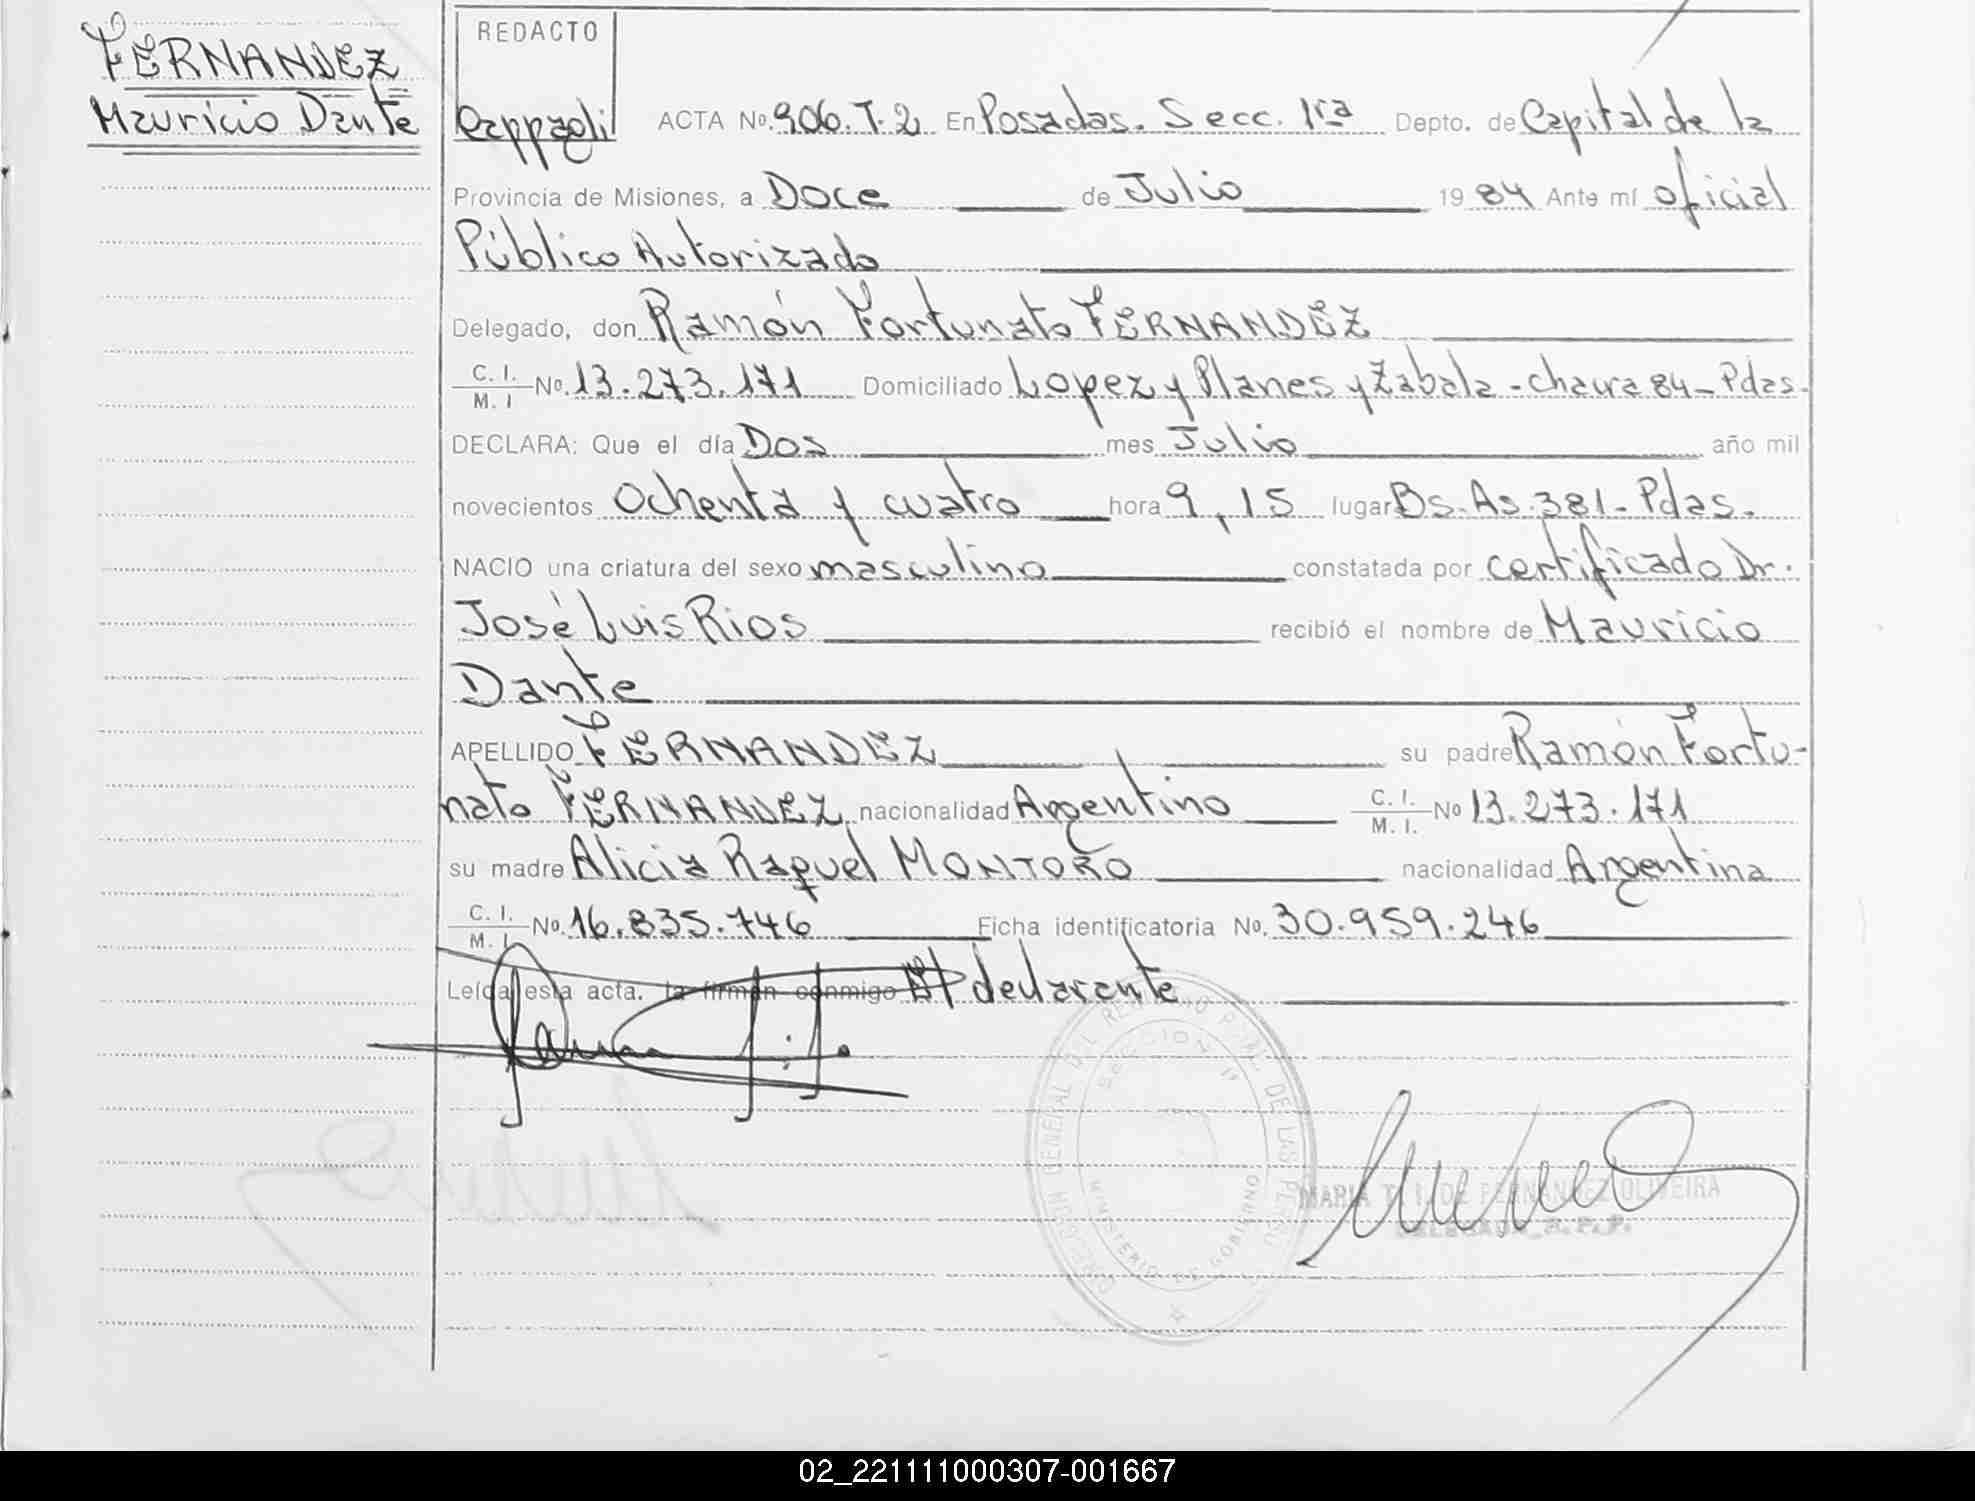 FERNANDEZ
Mauricio Dante
REDACTO
Cappaoli
ACTA No. 906. T. 2 En Posadas. Secc. 1ra Depto. de Capital de la
Provincia de Misiones, a Doce de Julio 19 84 Ante mí oficial
Público Autorizado
Delegado, don Ramón Fortunato FERNANDEZ
C. I. / M. I No. 13.273.171 Domiciliado Lopez y Planes y Zabala - chacra 84 - Pdas.
DECLARA: Que el día Dos mes Julio año mil
novecientos Ochenta y cuatro hora 9,15 lugar Bs. As. 381 - Pdas.
NACIO una criatura del sexo masculino constatada por certificado Dr.
José Luis Rios recibió el nombre de Mauricio
Dante
APELLIDO FERNANDEZ su padre Ramón Fortu-
nato FERNANDEZ nacionalidad Argentino C. I. / M. I. No 13.273.171
su madre Alicia Raquel MONTORO nacionalidad Argentina
C. I. / M. I. No. 16.835.746 Ficha identificatoria No. 30.959.246
Leída esta acta. la firman conmigo El declarante
DIRECCION GENERAL DEL REGISTRO P. DE LAS PERSO
SECCION 1a
MINISTERIO DE GOBIERNO
MARIA T. I. DE FERNANDEZ OLIVEIRA
DELEGADA R.P.P.
02_221111000307-001667